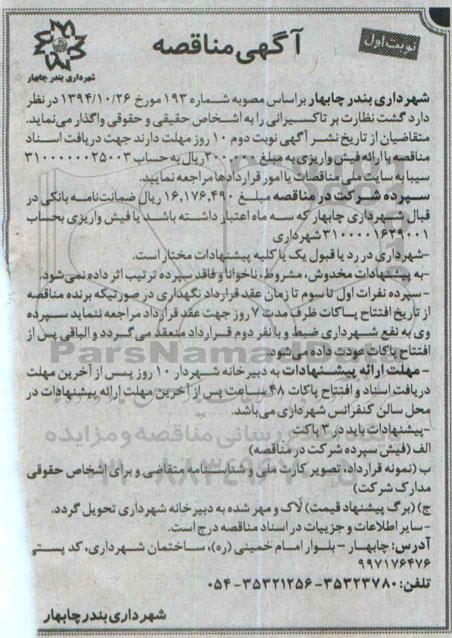 نوبت اول
آگهی مناقصه
شهرداری بندر چابهار
شهرداری بندر چابهار براساس مصوبه شماره ۱۹۳ مورخ ۱۳۹۴/۱۰/۲۶ در نظر
دارد گشت نظارت بر تاکسیرانی را به اشخاص حقیقی و حقوقی واگذار می‌نماید.
متقاضیان از تاریخ نشر آگهی نوبت دوم ۱۰ روز مهلت دارند جهت دریافت اسناد
مناقصه با ارائه فیش واریزی به مبلغ ۳۰۰،۰۰۰ ریال به حساب ۳۱۰۰۰۰۰۰۲۵۰۰۳
سیبا به سایت ملی مناقصات یا امور قراردادها مراجعه نمایند.
سپرده شرکت در مناقصه مبلغ ۱۶،۱۷۶،۴۹۰ ریال ضمانت‌نامه بانکی در
قبال شهرداری چابهار که سه ماه اعتبار داشته باشد یا فیش واریزی بحساب
۳۱۰۰۰۰۱۶۳۹۰۰۱ شهرداری
-شهرداری در رد یا قبول یک یا کلیه پیشنهادات مختار است.
-به پیشنهادات مخدوش، مشروط، ناخوانا و فاقد سپرده ترتیب اثر داده نمی‌شود.
-سپرده نفرات اول تا سوم تا زمان عقد قرارداد نگهداری در صورتیکه برنده مناقصه
از تاریخ افتتاح پاکات ظرف مدت ۷ روز جهت عقد قرارداد مراجعه ننماید سپرده
وی به نفع شهرداری ضبط و با نفر دوم قرارداد منعقد می‌گردد و الباقی پس از
افتتاح پاکات عودت داده می‌شود.
- مهلت ارائه پیشنهادات به دبیرخانه شهردار ۱۰ روز پس از آخرین مهلت
دریافت اسناد و افتتاح پاکات ۴۸ ساعت پس از آخرین مهلت ارائه پیشنهادات در
محل سالن کنفرانس شهرداری می‌باشد.
-پیشنهادات باید در ۳ پاکت
الف (فیش سپرده شرکت در مناقصه)
ب (نمونه قرارداد، تصویر کارت ملی و شناسنامه متقاضی و برای اشخاص حقوقی
مدارک شرکت)
ج) (برگ پیشنهاد قیمت) لاک و مهر شده به دبیرخانه شهرداری تحویل گردد.
- سایر اطلاعات و جزییات در اسناد مناقصه درج است.
آدرس: چابهار - بلوار امام خمینی (ره)، ساختمان شهرداری، کد پستی
۹۹۷۱۷۶۴۷۶
تلفن: ۳۵۳۲۳۷۸۰-۳۵۳۲۱۲۵۶-۰۵۴
شهرداری بندر چابهار
ParsNamadData